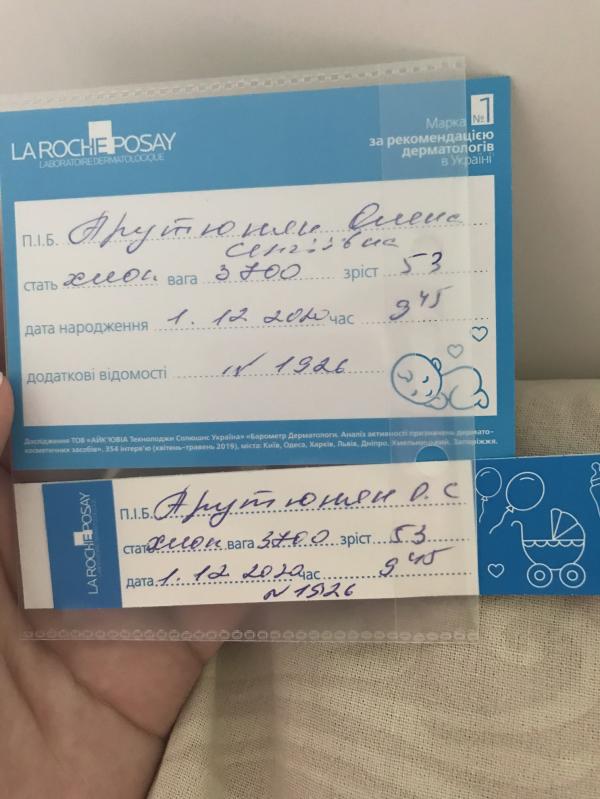 LA ROCHE POSAY
LABORATOIRE DERMATOLOGIQUE
Марка №1
за рекомендацією
дерматологів
в Україні
П.І.Б. Арутюнян Олена
Сергіївна
стать хлоп вага 3700 зріст 53
дата народження 1.12.2020 час 9 45
додаткові відомості №1926
Дослідження ТОВ «АЙК'ЮВІА Текнолоджи Солюшнс Україна» «Барометр Дерматологи. Аналіз активності призначень дермато-
косметичних засобів», 354 інтерв'ю (квітень-травень 2019), міста: Київ, Одеса, Харків, Львів, Дніпро, Хмельницький, Запоріжжя.
LA ROCHE POSAY
П.І.Б. Арутюнян О.С
стать хлоп вага 3700 зріст 53
дата 1.12.2020 час 9 45
№1926